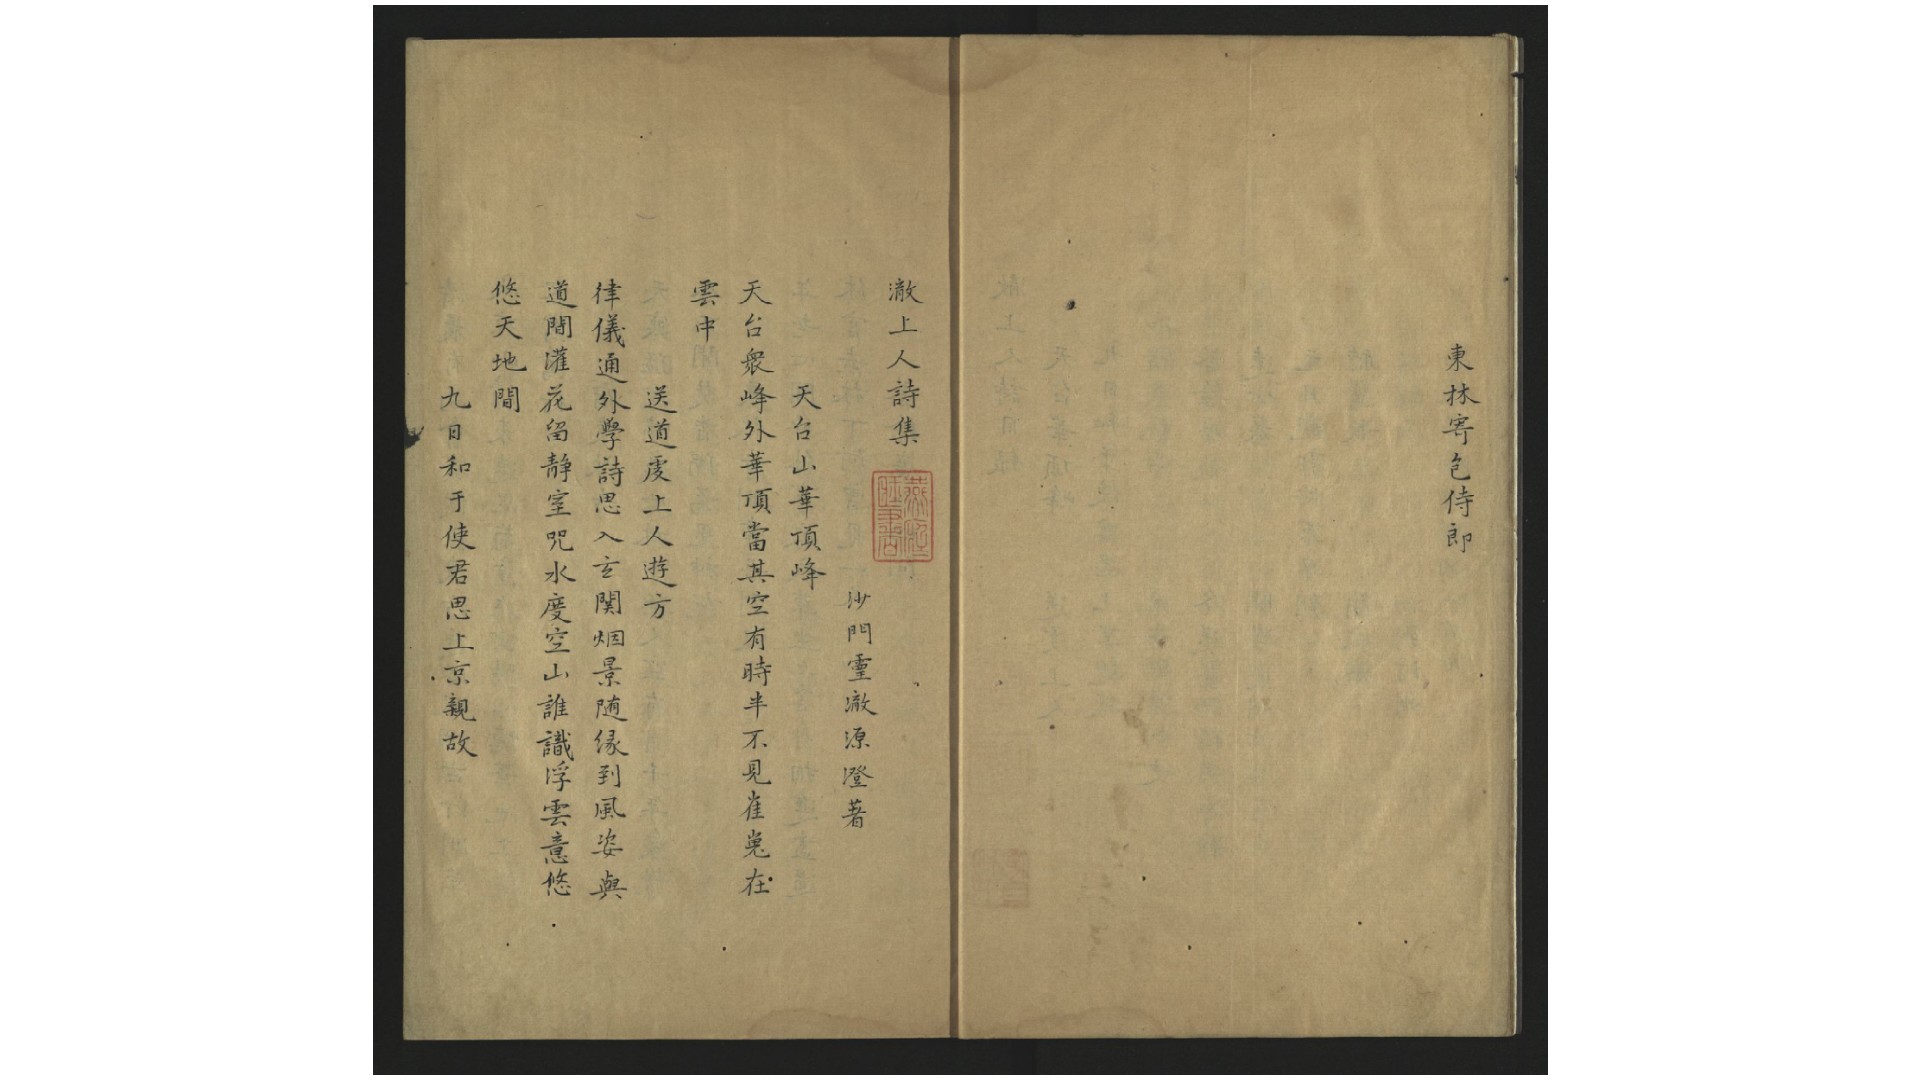 東林寄包侍郎
澈上人詩集
沙門靈澈源澄著
天台山華頂峰
天台衆峰外華頂當其空有時半不見崔嵬在
雲中
送道虔上人遊方
律儀通外學詩思入玄関烟景随缘到風姿與
道間灌花留静室咒水度空山誰識浮雲意悠
悠天地間
九日和于使君思上京親故